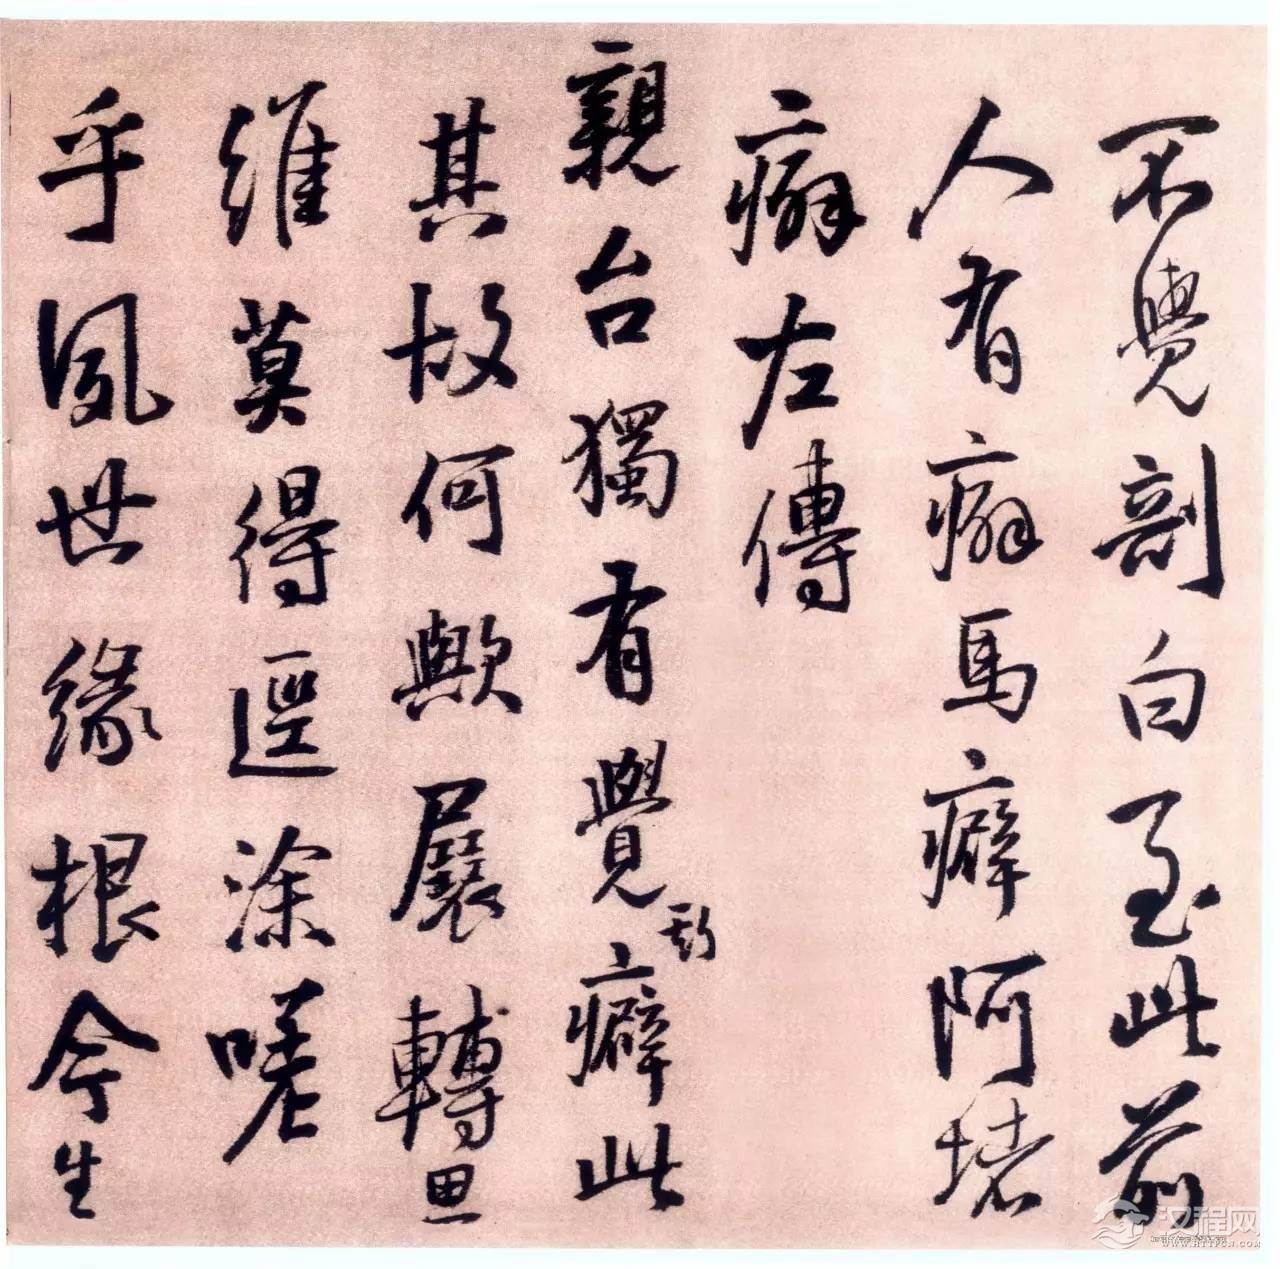 不覺剖白至此前
人有癖馬癖阿堵
癖左傳
親台獨有覺癖此
其故何歟展轉思
維莫得逕涂嗟
乎夙世緣根今生
汉程网
WWW.HTTPCN.COM